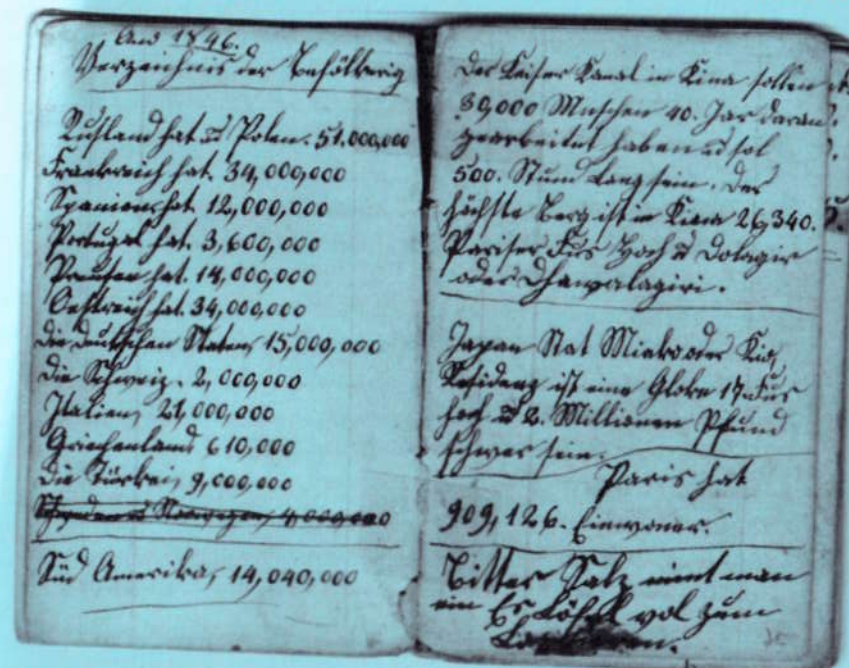 Ano 1846.
Verzeichnis der Befölkerig
Rusland hat u Polen. 51.000,000
Frankreich hat. 34,000,000
Spanien hat. 12,000,000
Portugal hat. 3,600,000
Preusen hat. 14,000,000
Oestreich hat. 34,000,000
die deutschen Staten, 15,000,000
die Schweiz. 2,000,000
Italien, 21,000,000
Griechenland 610,000
die Türkei, 9,000,000
Schweden u Norwegen, 4000000
Süd Amerika, 14,040,000
Der Keiser Kanal in Kina sollen
30,000 Menschen 40. Jar daran
gearbeitet haben u sol
500. Stund lang sein. Der
höchste Berg ist in Kina 26,340.
Pariser Fus Hoch u Dolagir
oder Dhawalagiri.
Japan Stat Miako oder Kio,
Residenz ist eine Gloke 17. Fus
hoch u 2. Millionen Pfund
schwer sein.
Paris hat
909,126. Einwoner.
Bitter Salz nimt man
ein Es Löfel vol zum